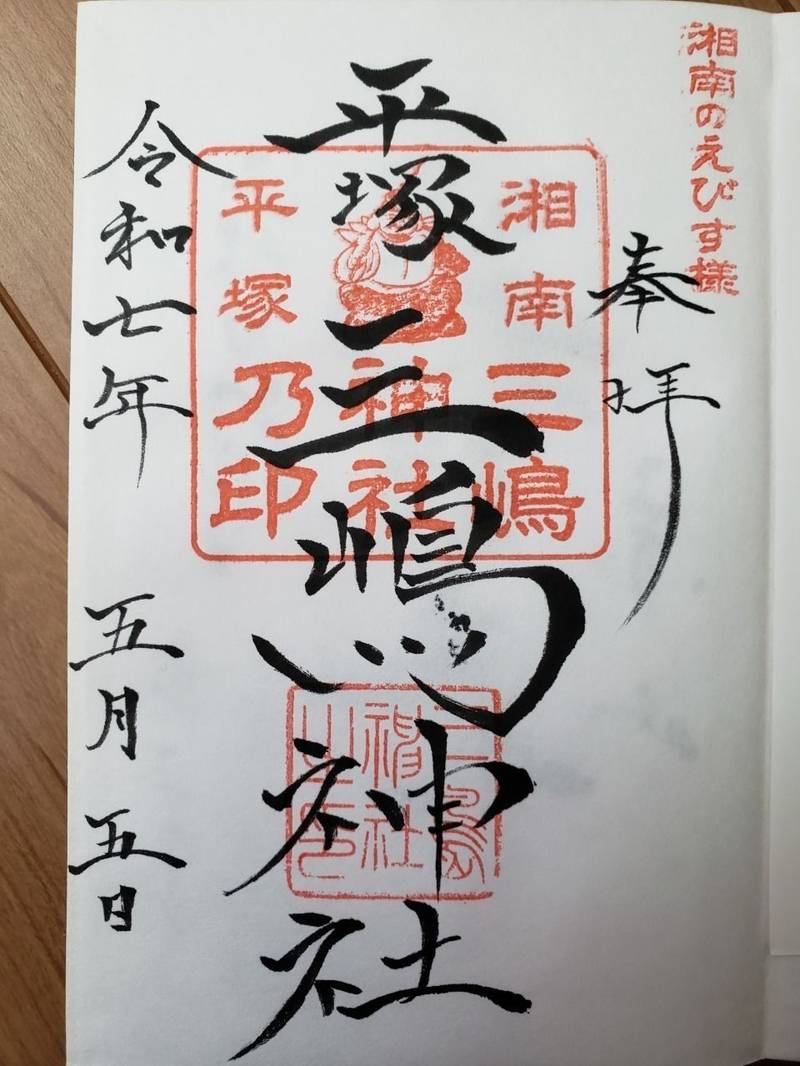 湘南のえびす様
奉拝
平塚三嶋神社
湘南三嶋
神社
平塚乃印
三島
神社
之印
令和七年
五月五日